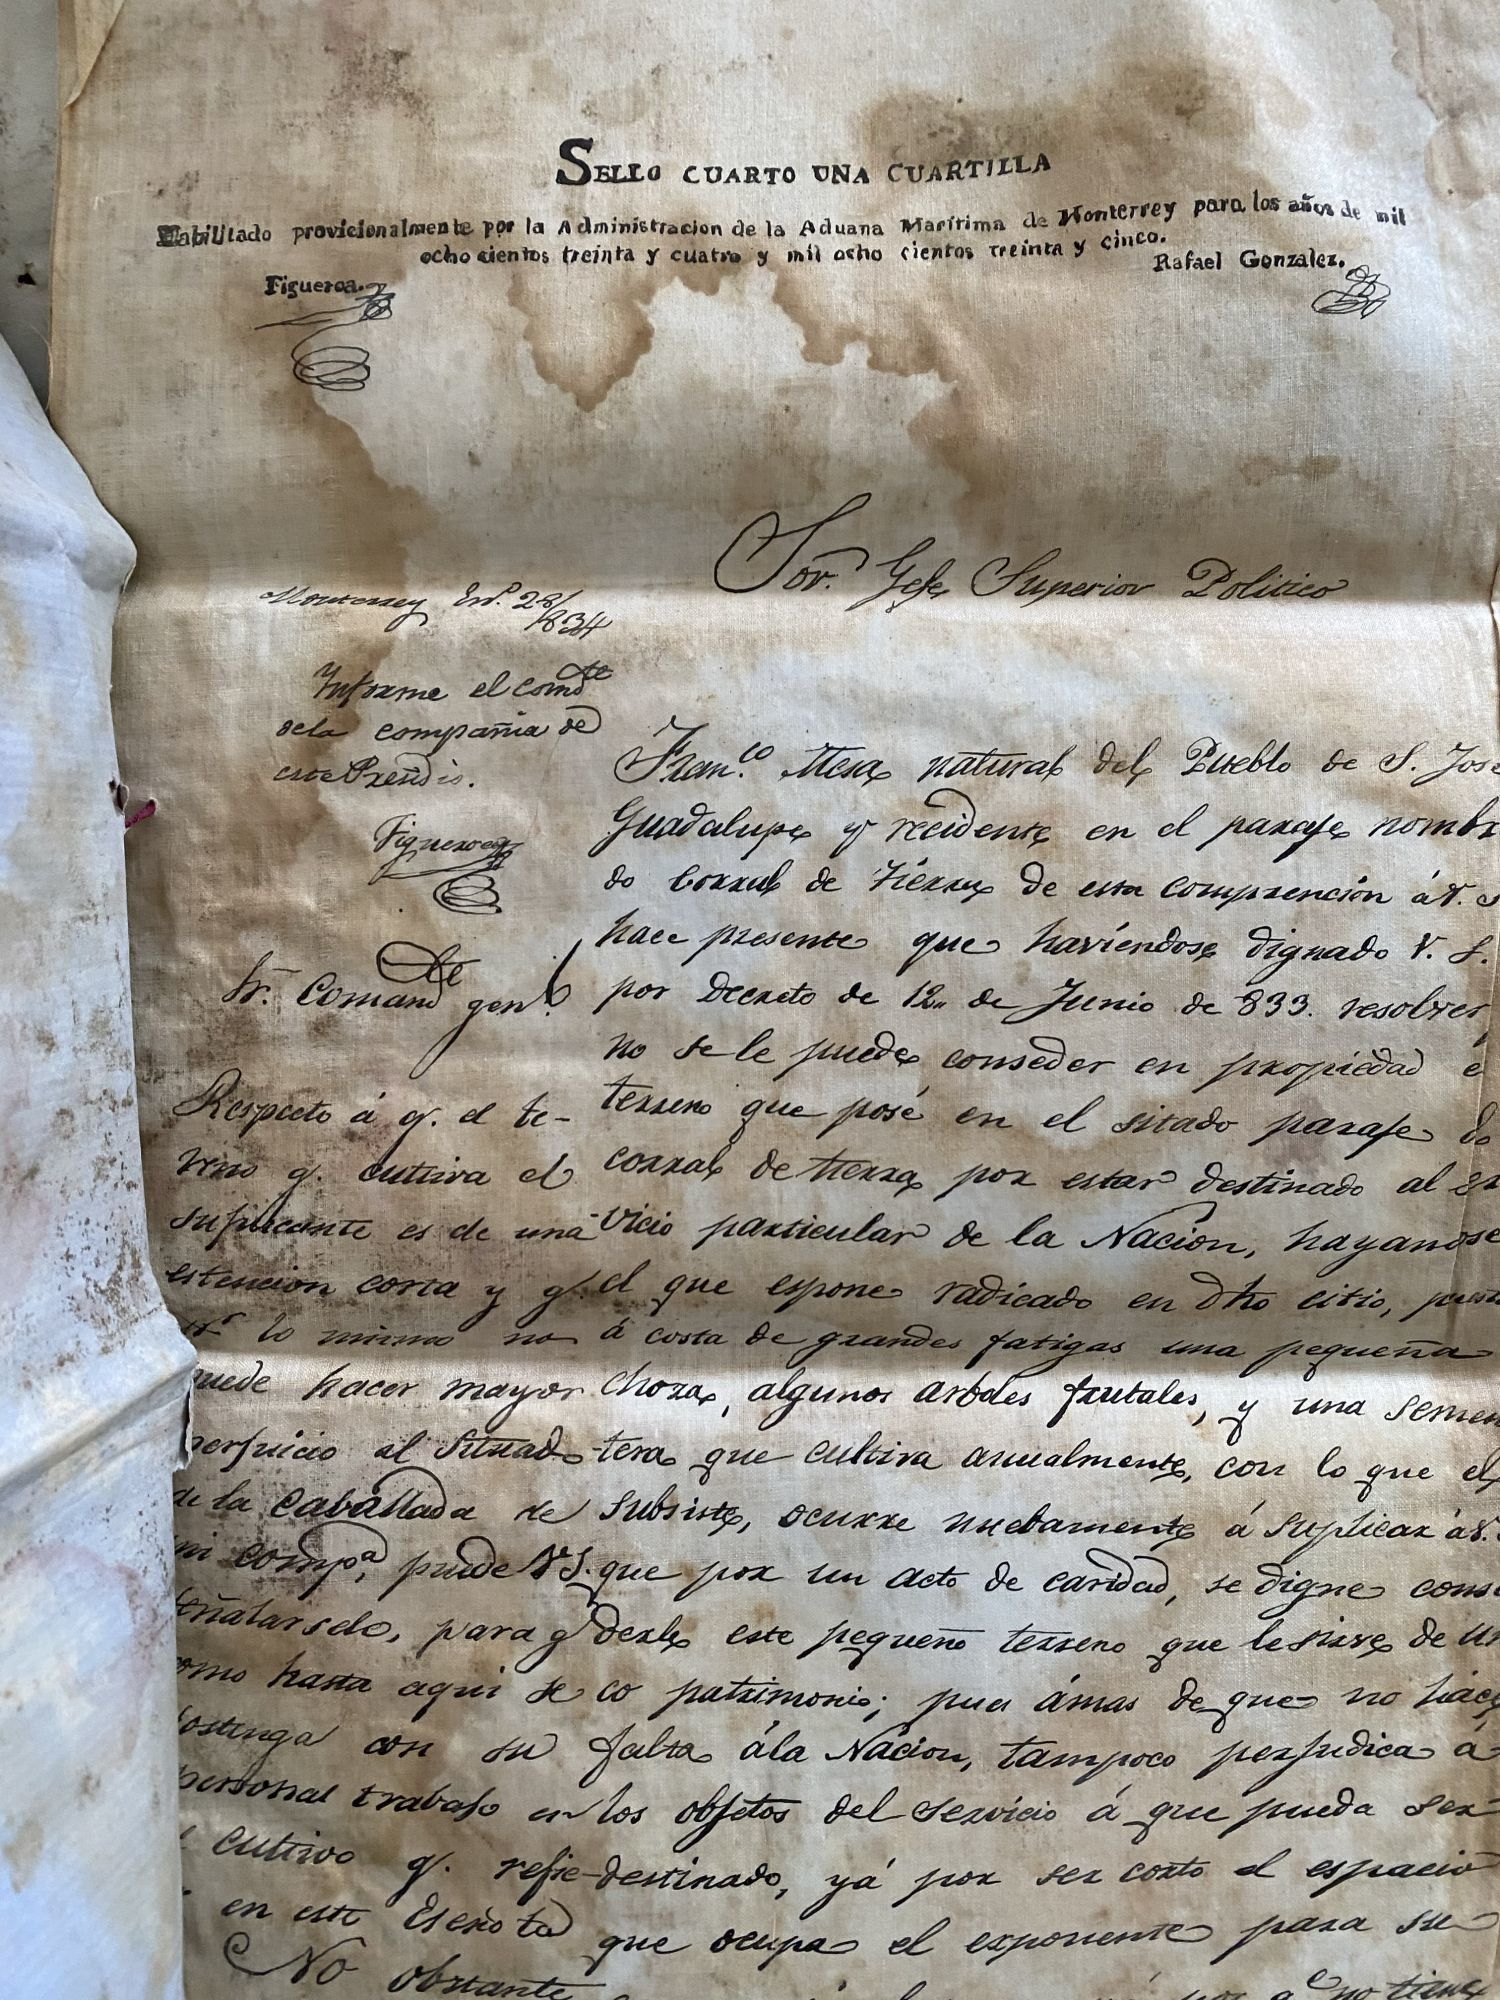 SELLO CUARTO UNA CUARTILLA
Habilitado provicionalmente por la Administracion de la Aduana Marítima de Monterrey para los años de mil
ocho cientos treinta y cuatro y mil ocho cientos treinta y cinco.
Figueroa.
Rafael Gonzalez.
Sor. Gefe Superior Politico
Monterrey En.º 28/834
Informe el comdte
dela compañia de
este Presidio.
Figueroa
Sr. Comandte genl.
Respecto á q. el te-
rreno q. cultiva el
suplicante es de una
estencion corta y q.
lo mismo no
puede hacer mayor
perjuicio al situado
de la caballada de
mi compa, puede V.S.
señalarselo, para q
como hasta aqui se
sostenga con su
personal trabajo en
el cultivo q. refie-
en este Escrito
No obstante
Fran.co Mesa natural del Pueblo de S. José
Guadalupe y recidente en el paraje nombra
do Corral de Tierra de esta comprencion á V. S
hace presente que haviendose dignado V. S.
por Decreto de 12,, de Junio de 833. resolver
no se le puede conseder en propiedad e
terreno que posé en el sitado paraje do
corral de tierra por estar destinado al ser
vicio particular de la Nacion, hayandose
el que espone radicado en dho citio, puesto
á costa de grandes fatigas una pequeña
choza, algunos arboles frutales, y una semen
tera que cultiva anualmente, con lo que el
subsiste, ocurre nuebamente á suplicar á V.
que por un acto de caridad, se digne conse
derle este pequeño terreno que le sirve de Uni
co patrimonio; pues ámas de que no háce
falta ála Nacion, tampoco perjudica á
los objetos del servicio á que pueda ser
destinado, yá por ser corto el espacio
que ocupa el exponente para su
no tiene